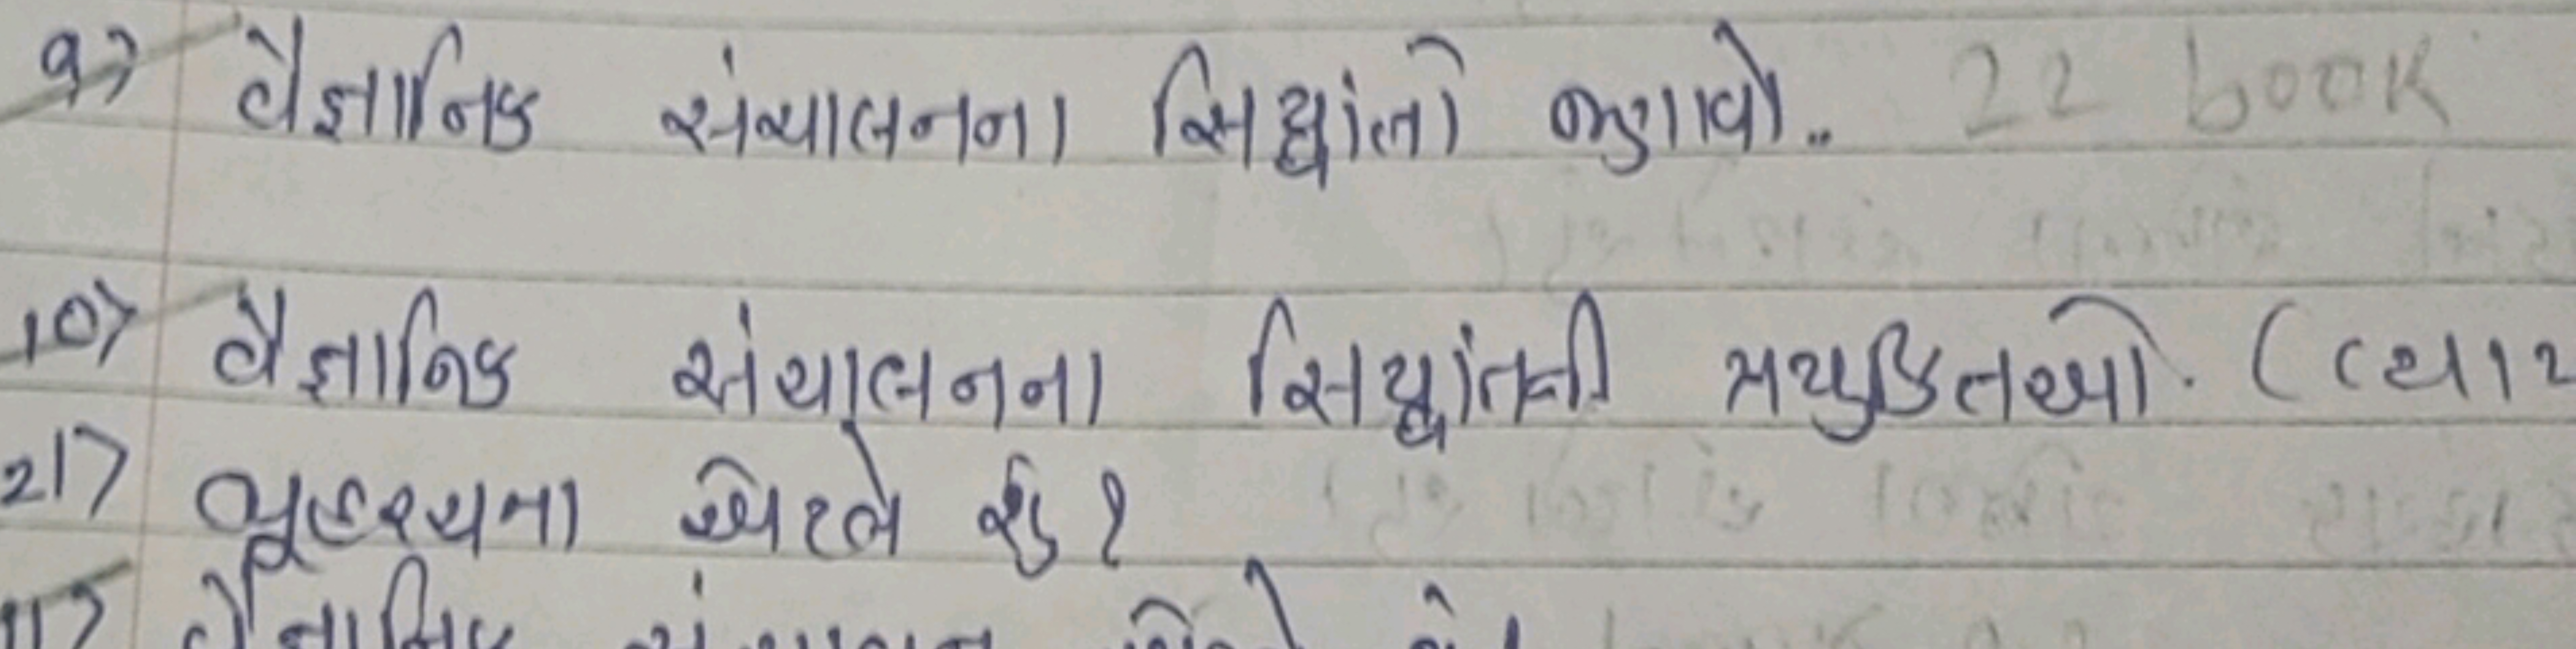 9> વૈજ્ઞાનિક સંચાલનના સિધ્ધાંતો જણાવો.. 22 book
10> વૈજ્ઞાનિક સંચાલનના સિધ્ધાંતની પ્રયુકિતઓ. (
21> વ્યૂહરચના એટલે શું?
11> વૈજ્ઞાનિક સંચાલન